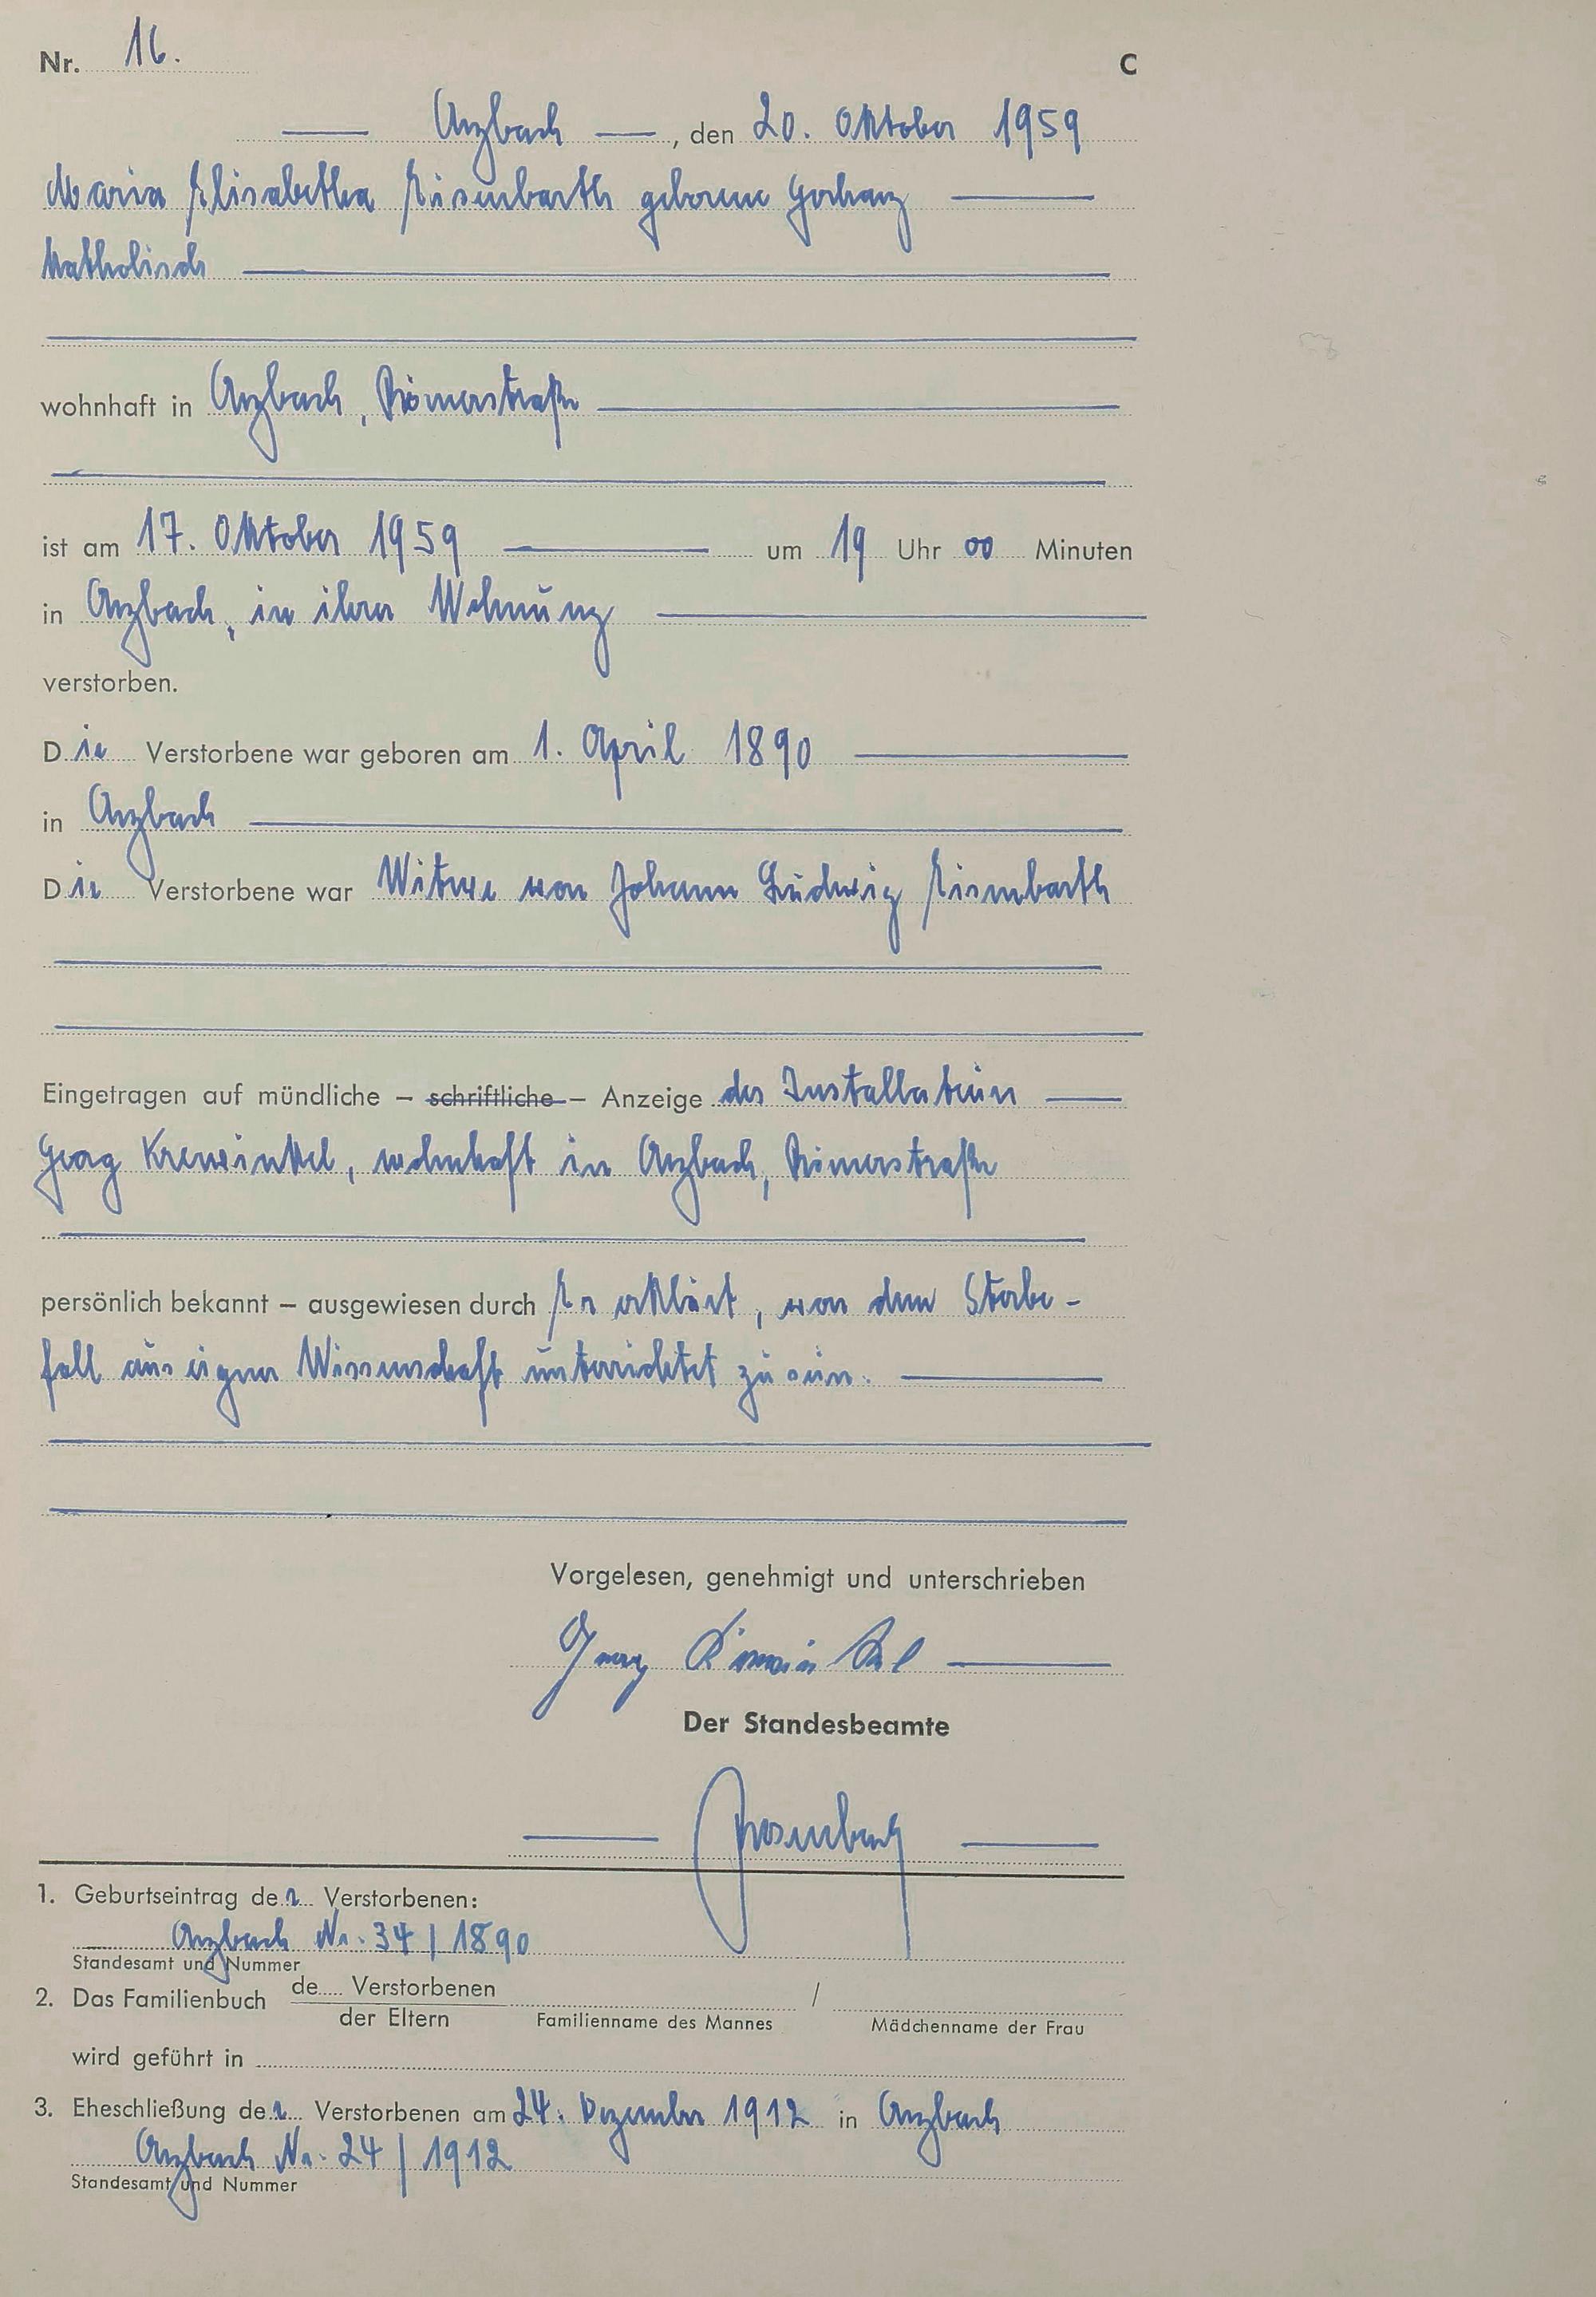 Nr. 16. C
Arzbach, den 20. Oktober 1959
Maria Elisabetha Eisenbarth geborene Gerharz
katholisch
wohnhaft in Arzbach, Römerstraße
ist am 17. Oktober 1959 um 19 Uhr 00 Minuten
in Arzbach, in ihrer Wohnung
verstorben.
Die Verstorbene war geboren am 1. April 1890
in Arzbach
Die Verstorbene war Witwe von Johann Ludwig Eisenbarth
Eingetragen auf mündliche – schriftliche – Anzeige des Installateurs
Georg Krewinkel, wohnhaft in Arzbach, Römerstraße
persönlich bekannt – ausgewiesen durch Er erklärt, von dem Sterbe-
fall aus eigner Wissenschaft unterrichtet zu sein.
Vorgelesen, genehmigt und unterschrieben
Georg Krewinkel
Der Standesbeamte
1. Geburtseintrag der Verstorbenen:
Arzbach Nr. 34 | 1890
Standesamt und Nummer
2. Das Familienbuch de..... Verstorbenen /
der Eltern Familienname des Mannes Mädchenname der Frau
wird geführt in
3. Eheschließung der Verstorbenen am 24. Dezember 1912 in Arzbach
Arzbach Nr. 24 | 1912
Standesamt und Nummer